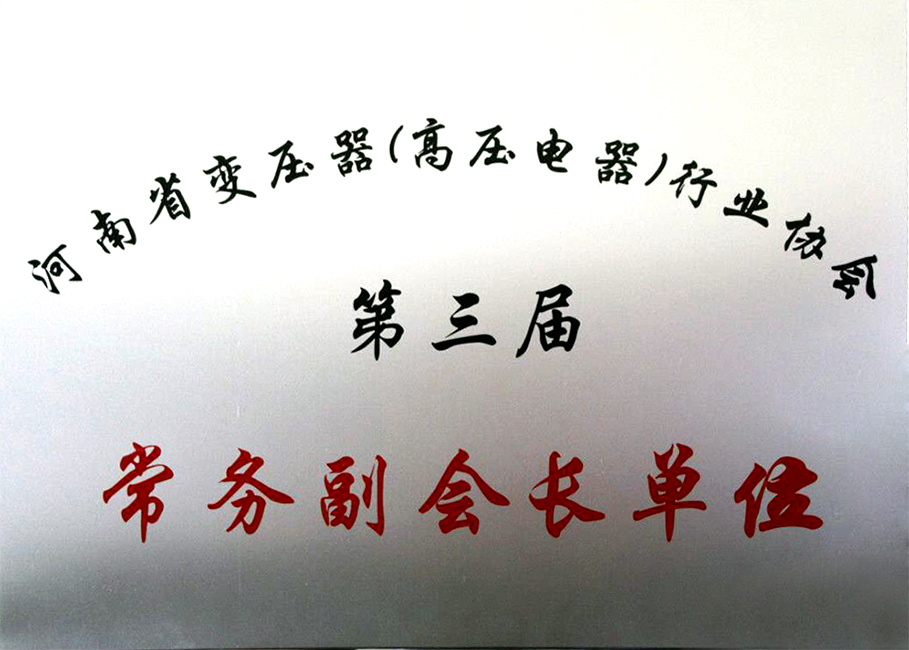 河南省变压器(高压电器)行业协会
第三届
常务副会长单位